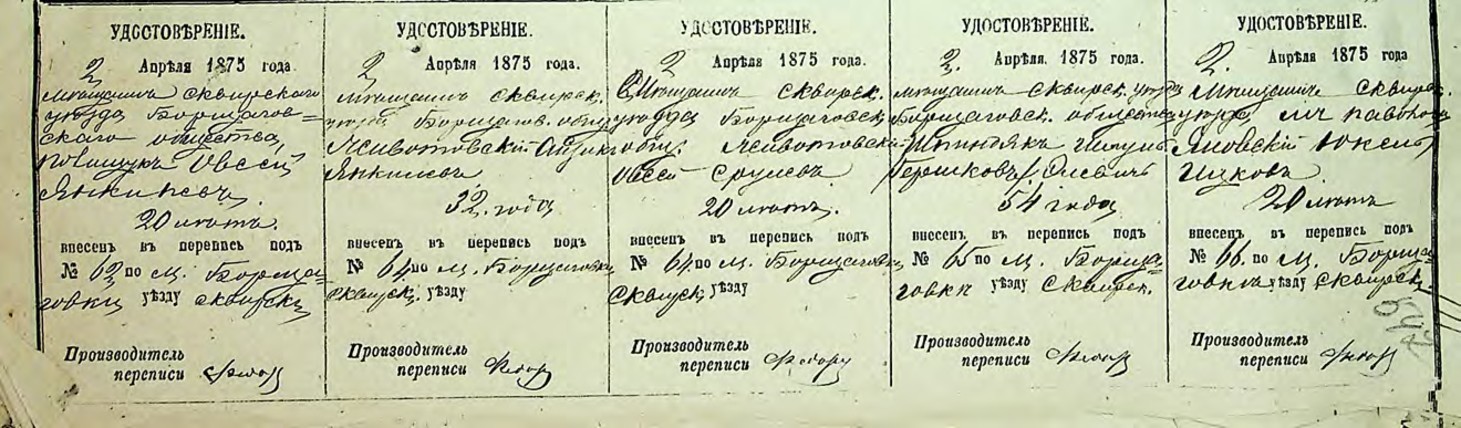 УДОСТОВѢРЕНІЕ.
2 Апрѣля 1875 года.
Мѣщанинъ Сквирскаго
уѣзда Борщагов=
скаго общества,
Овсей
Янкилевъ.
20 лѣтъ.
внесенъ въ перепись подъ
№ 62 по м. Борща=
говки уѣзду Сквирск.
Производитель
переписи
УДОСТОВѢРЕНІЕ.
2 Апрѣля 1875 года.
Мѣщанинъ Сквирск.
уѣзда Борщагов. общ.
Животовскій
Янкилевъ
32. года
внесенъ въ перепись подъ
№ 64 по м. Борщаговки
Сквирск. уѣзду
Производитель
переписи
УДОСТОВѢРЕНІЕ.
2 Апрѣля 1875 года.
Мѣщанинъ Сквирск.
уѣзда Борщаговск.
общ. Животовскій
Овсей Срулевъ
20 лѣтъ.
внесенъ въ перепись подъ
№ 64 по м. Борщаговки
Сквирск. уѣзду
Производитель
переписи
УДОСТОВѢРЕНІЕ.
2. Апрѣля. 1875 года.
Мѣщанинъ Сквирск. уѣзда
Борщаговск. общества
Гершковъ
54 года
внесенъ въ перепись подъ
№ 65 по м. Борща=
говки уѣзду Сквирск.
Производитель
переписи
УДОСТОВѢРЕНІЕ.
2. Апрѣля 1875 года.
Мѣщанинъ Сквирск.
уѣзда, м. Паволочь
Яновскій Юкель
Ицковъ
20 лѣтъ
внесенъ въ перепись подъ
№ 66. по м. Борща=
говкѣ уѣзду Сквирск.
Производитель
переписи